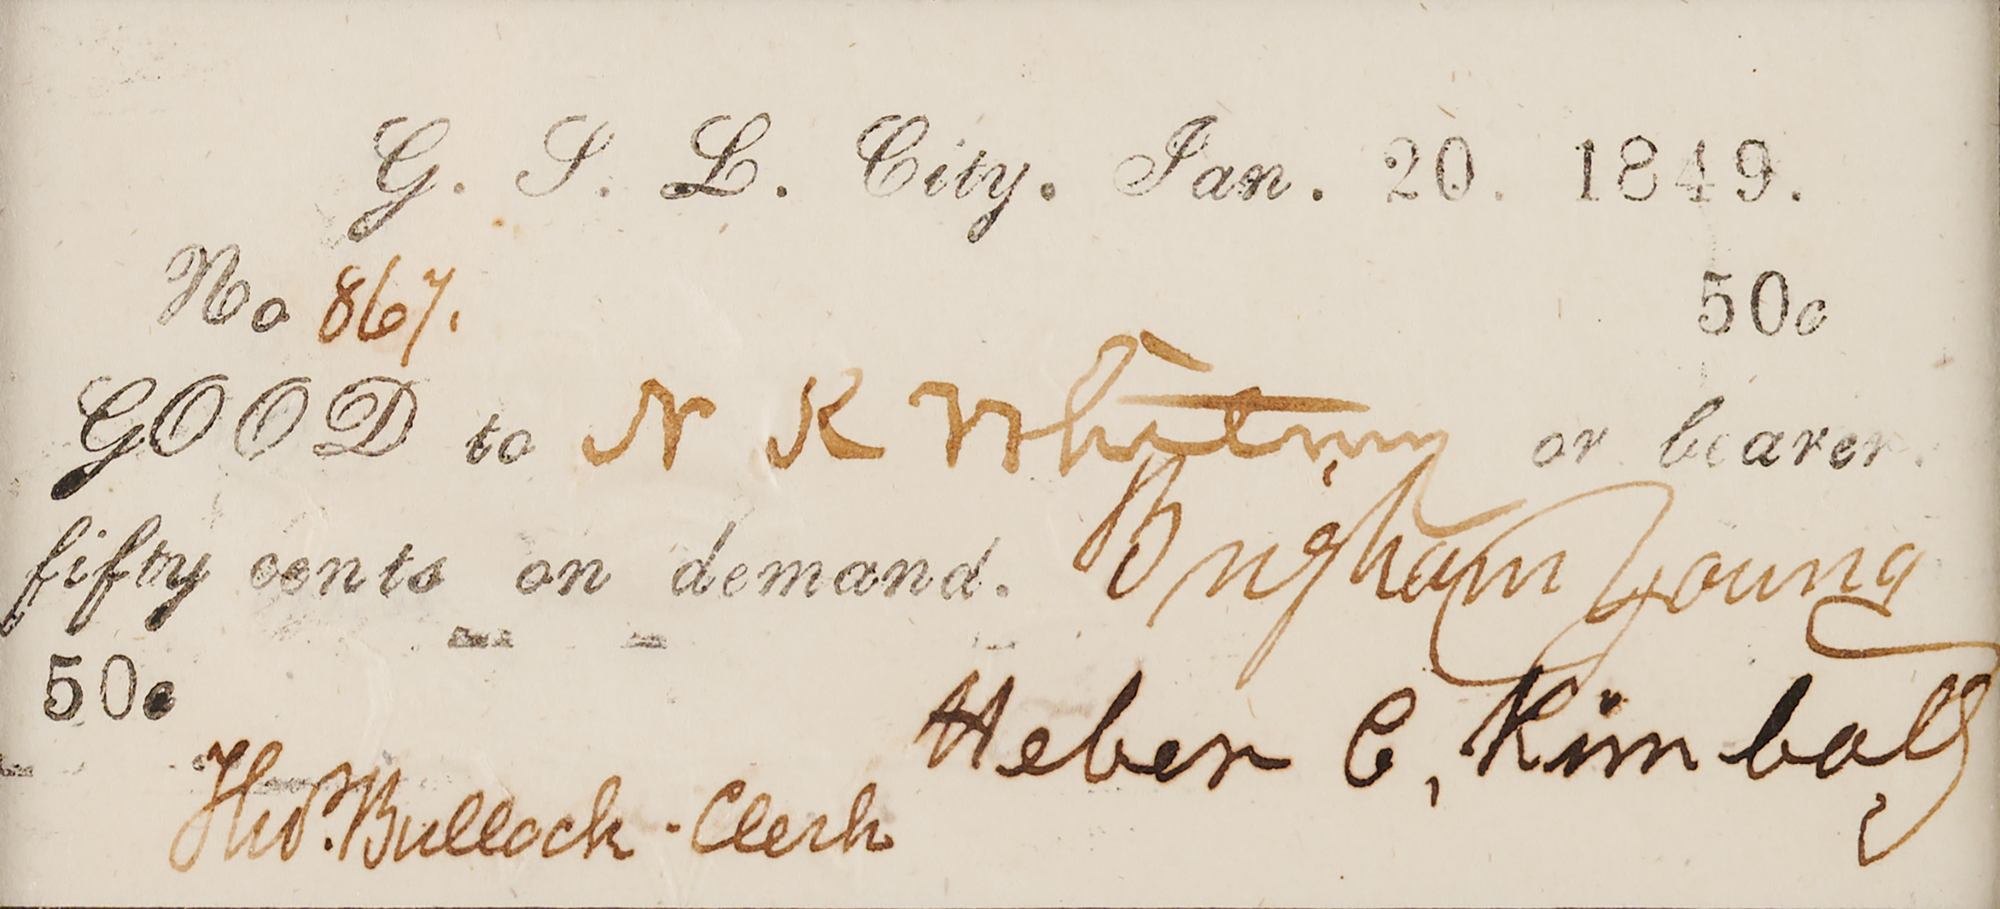 G. S. L. City. Jan. 20. 1849.
No 867. 50c
GOOD to N K Whitney or bearer.
fifty cents on demand. Brigham Young
50c
Heber C. Kimball
Thos. Bullock - Clerk